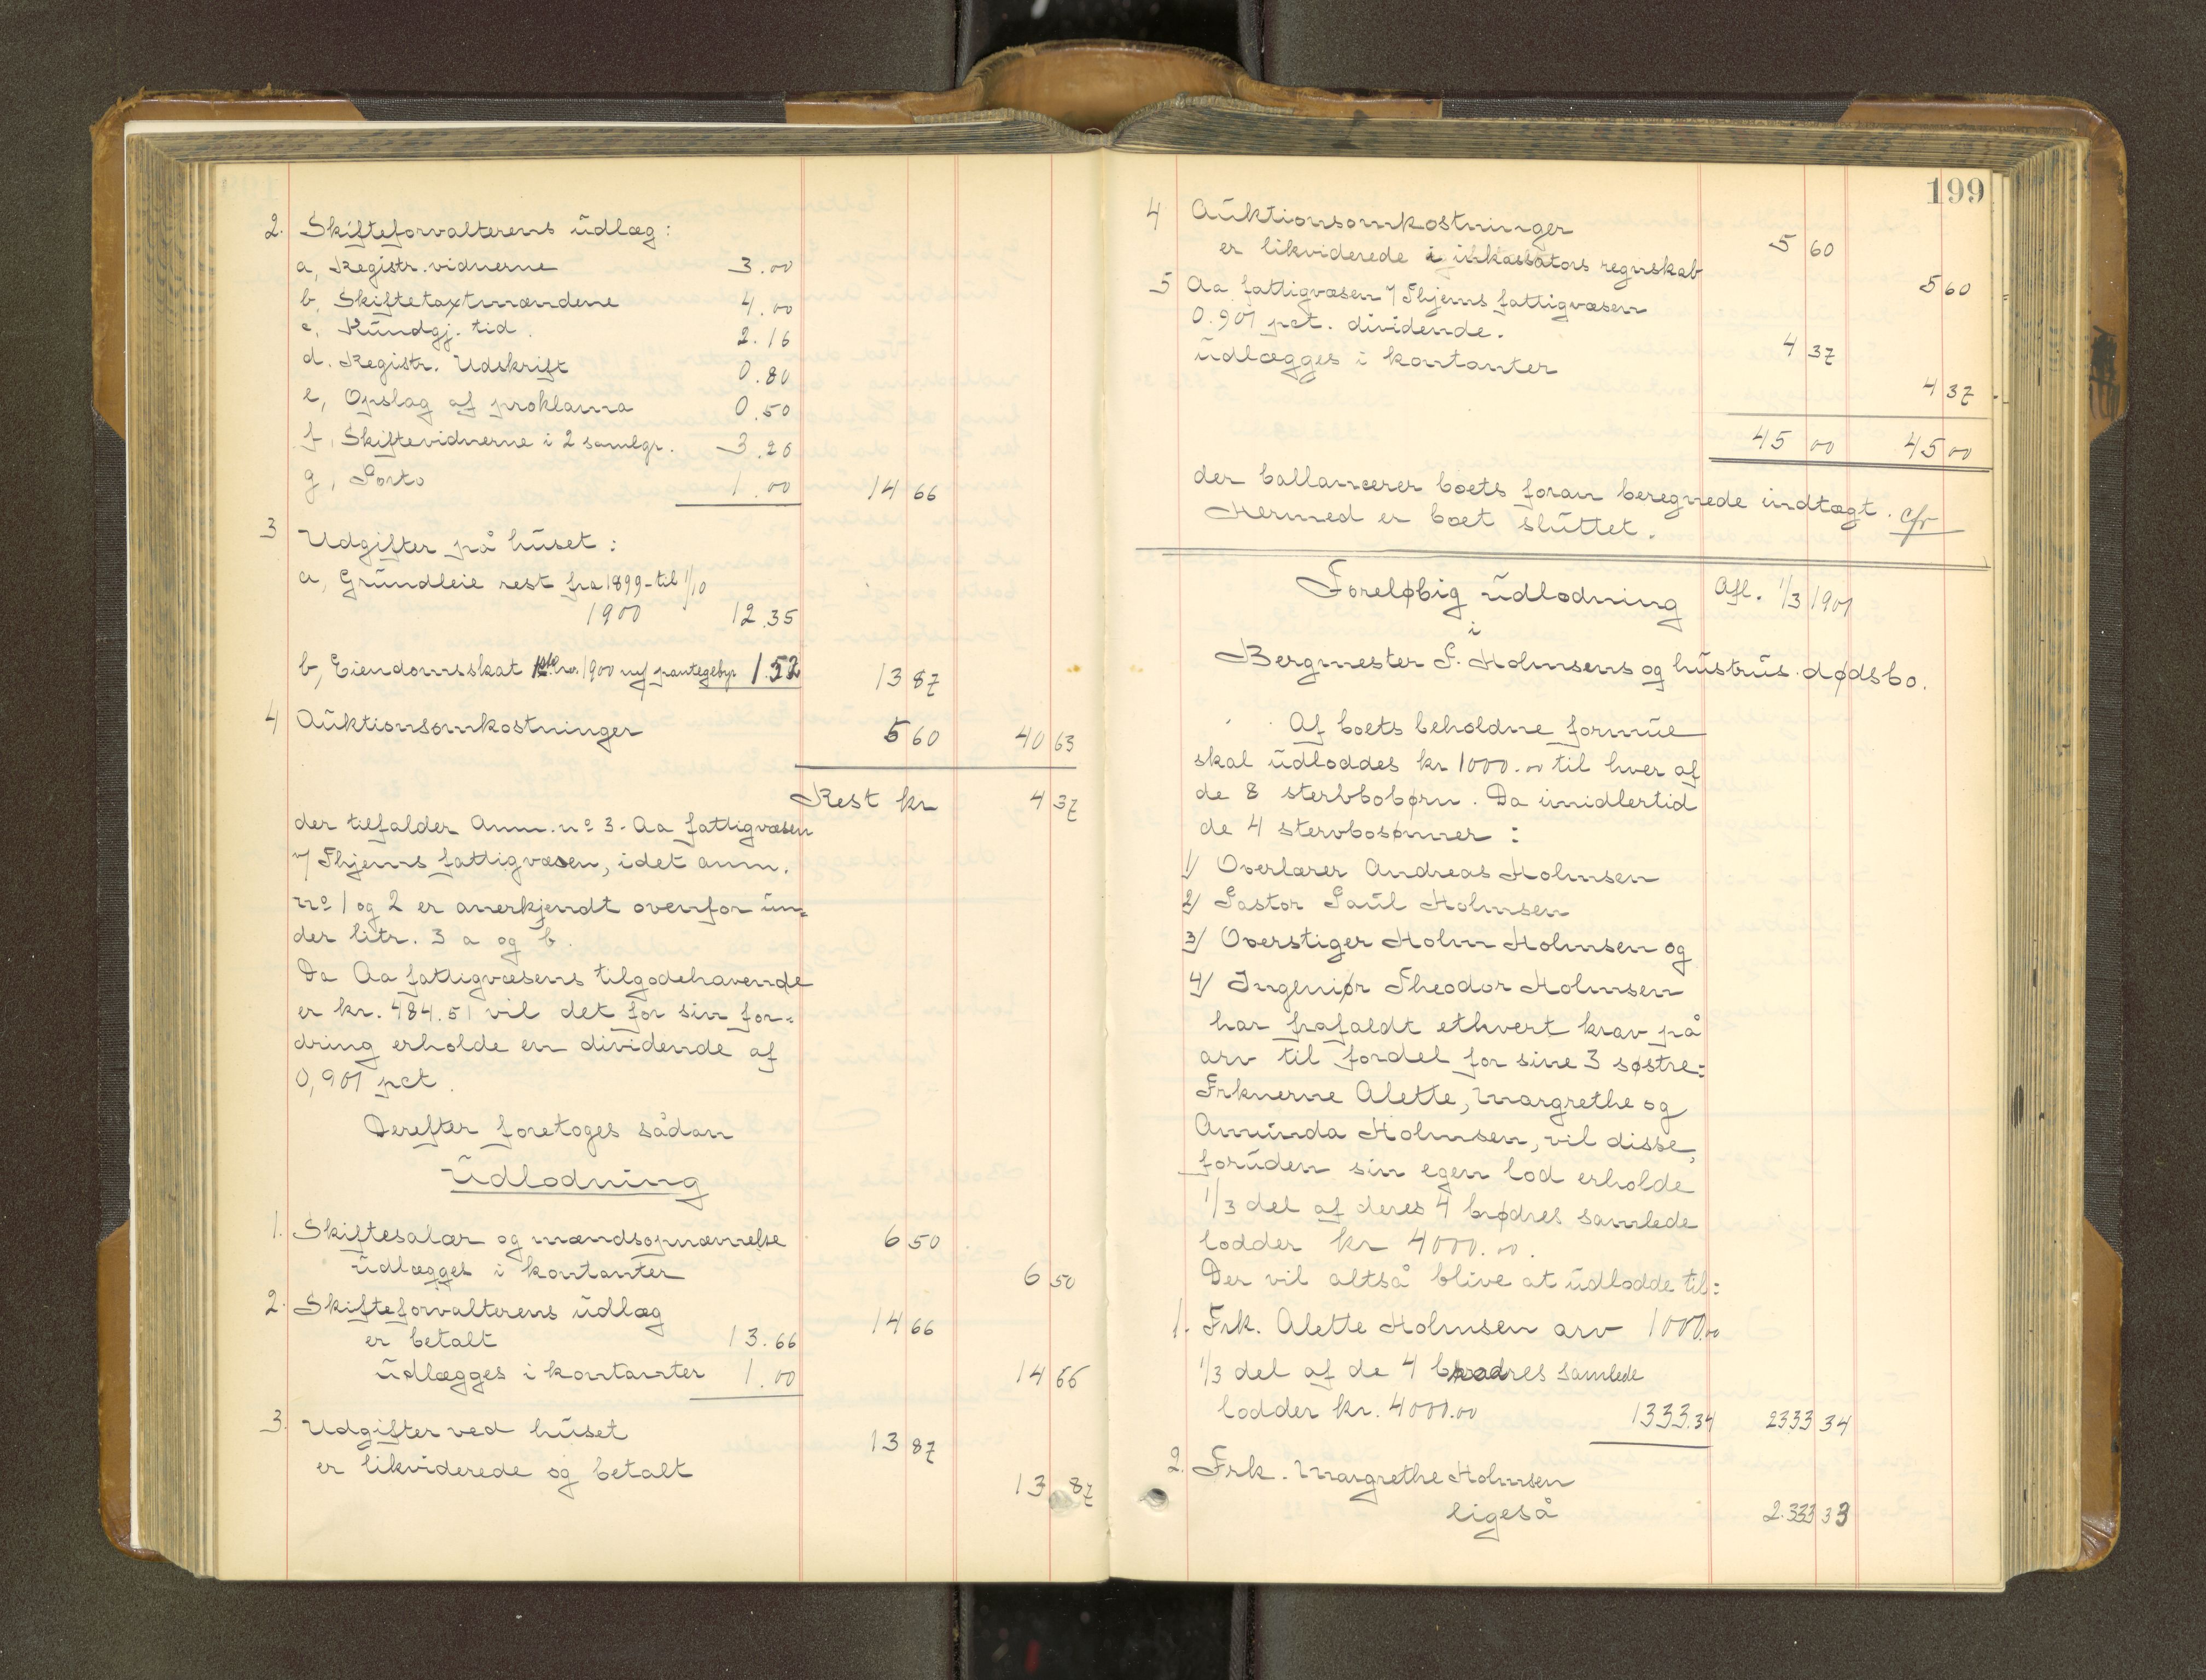 2. Skifteforvalterens udlæg:
a, Registr. vidnerne 3.00
b, Skiftetaxtmændene 4.00
c, Kundgj. tid. 2.16
d. Registr. Udskrift 0.80
e, Opslag af proklama 0.50
f, Skiftevidnerne i 2 samlgr. 3.20
g, Porto 1.00 14 66
3 Udgifter på huset:
a, Grundleie rest fra 1899 - til 1/10
1900 12.35
b, Eiendomsskat 1900 m/ pantegebyr 1.52 13 87
4 Auktionsomkostninger 5 60 40 63
Rest kr 4 37
der tilfalder Anm. no 3 - Aa fattigvæsen
7 Thjems fattigvæsen, idet anm.
no 1 og 2 er anerkjendt ovenfor un=
der litr. 3 a og b.
Da Aa fattigvæsens tilgodehavende
er kr. 484.51 vil det for sin for=
dring erholde en dividende af
0,901 pct.
Derefter foretoges sådan
Udlodning
1. Skiftesalær og mændsopnævnelse 6 50
udlægges i kontanter 6 50
2. Skifteforvalterens udlæg 14 66
er betalt 13.66
udlægges i kontanter 1.00 14 66
3. Udgifter ved huset 13 87
er likviderede og betalt 13 87
199
4 Auktionsomkostninger 5 60
er likviderede i inkassators regnskab 5 60
5 Aa fattigvæsen 7 Thjems fattigvæsen
0.901 pct. dividende. 4 37
udlægges i kontanter 4 37
45 00 45 00
der ballancerer boets foran beregnede indtægt. cfr
Hermed er boet sluttet.
Foreløbig udlodning Afl. 1/3 1901
i
Bergmester P. Holmsens og hustrus dødsbo.
Af boets beholdne formue
skal udloddes kr 1000.00 til hver af
de 8 sterbbobørn. Da imidlertid
de 4 stervbosønner:
1/ Overlærer Andreas Holmsen
2/ Pastor Paul Holmsen
3/ Overstiger Holm Holmsen og
4/ Ingeniør Theodor Holmsen
har frafaldt ethvert krav på
arv til fordel for sine 3 søstre:
Frknerne Alette, Margrethe og
Aminda Holmsen, vil disse,
foruden sin egen lod erholde
1/3 del af deres 4 brødres samlede
lodder kr 4000.00.
Der vil altså blive at udlodde til:
1. Frk. Alette Holmsen arv 1000.00
1/3 del af de 4 brødres samlede
lodder kr. 4000.00 1333.34 2333 34
2. Frk. Margrethe Holmsen
ligeså 2.333 33